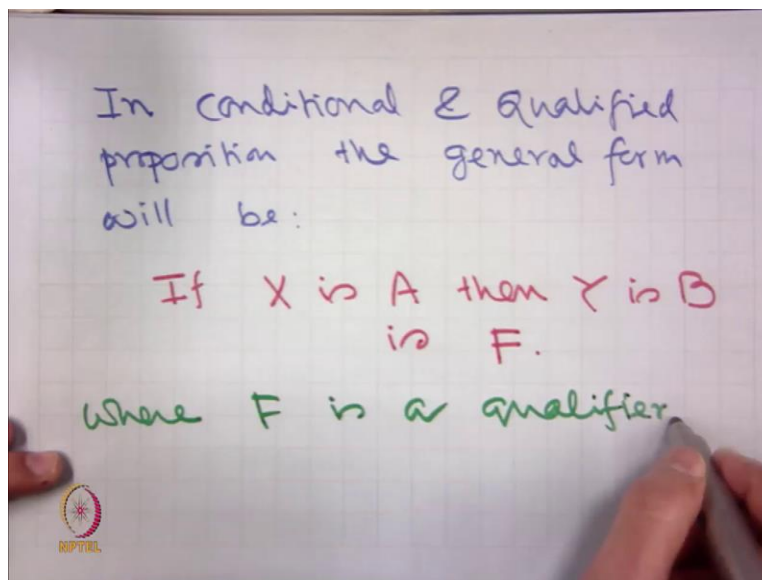 In conditional & Qualified
proposition the general form
will be:
If X is A then Y is B
is F.
where F is a qualifier
NPTEL